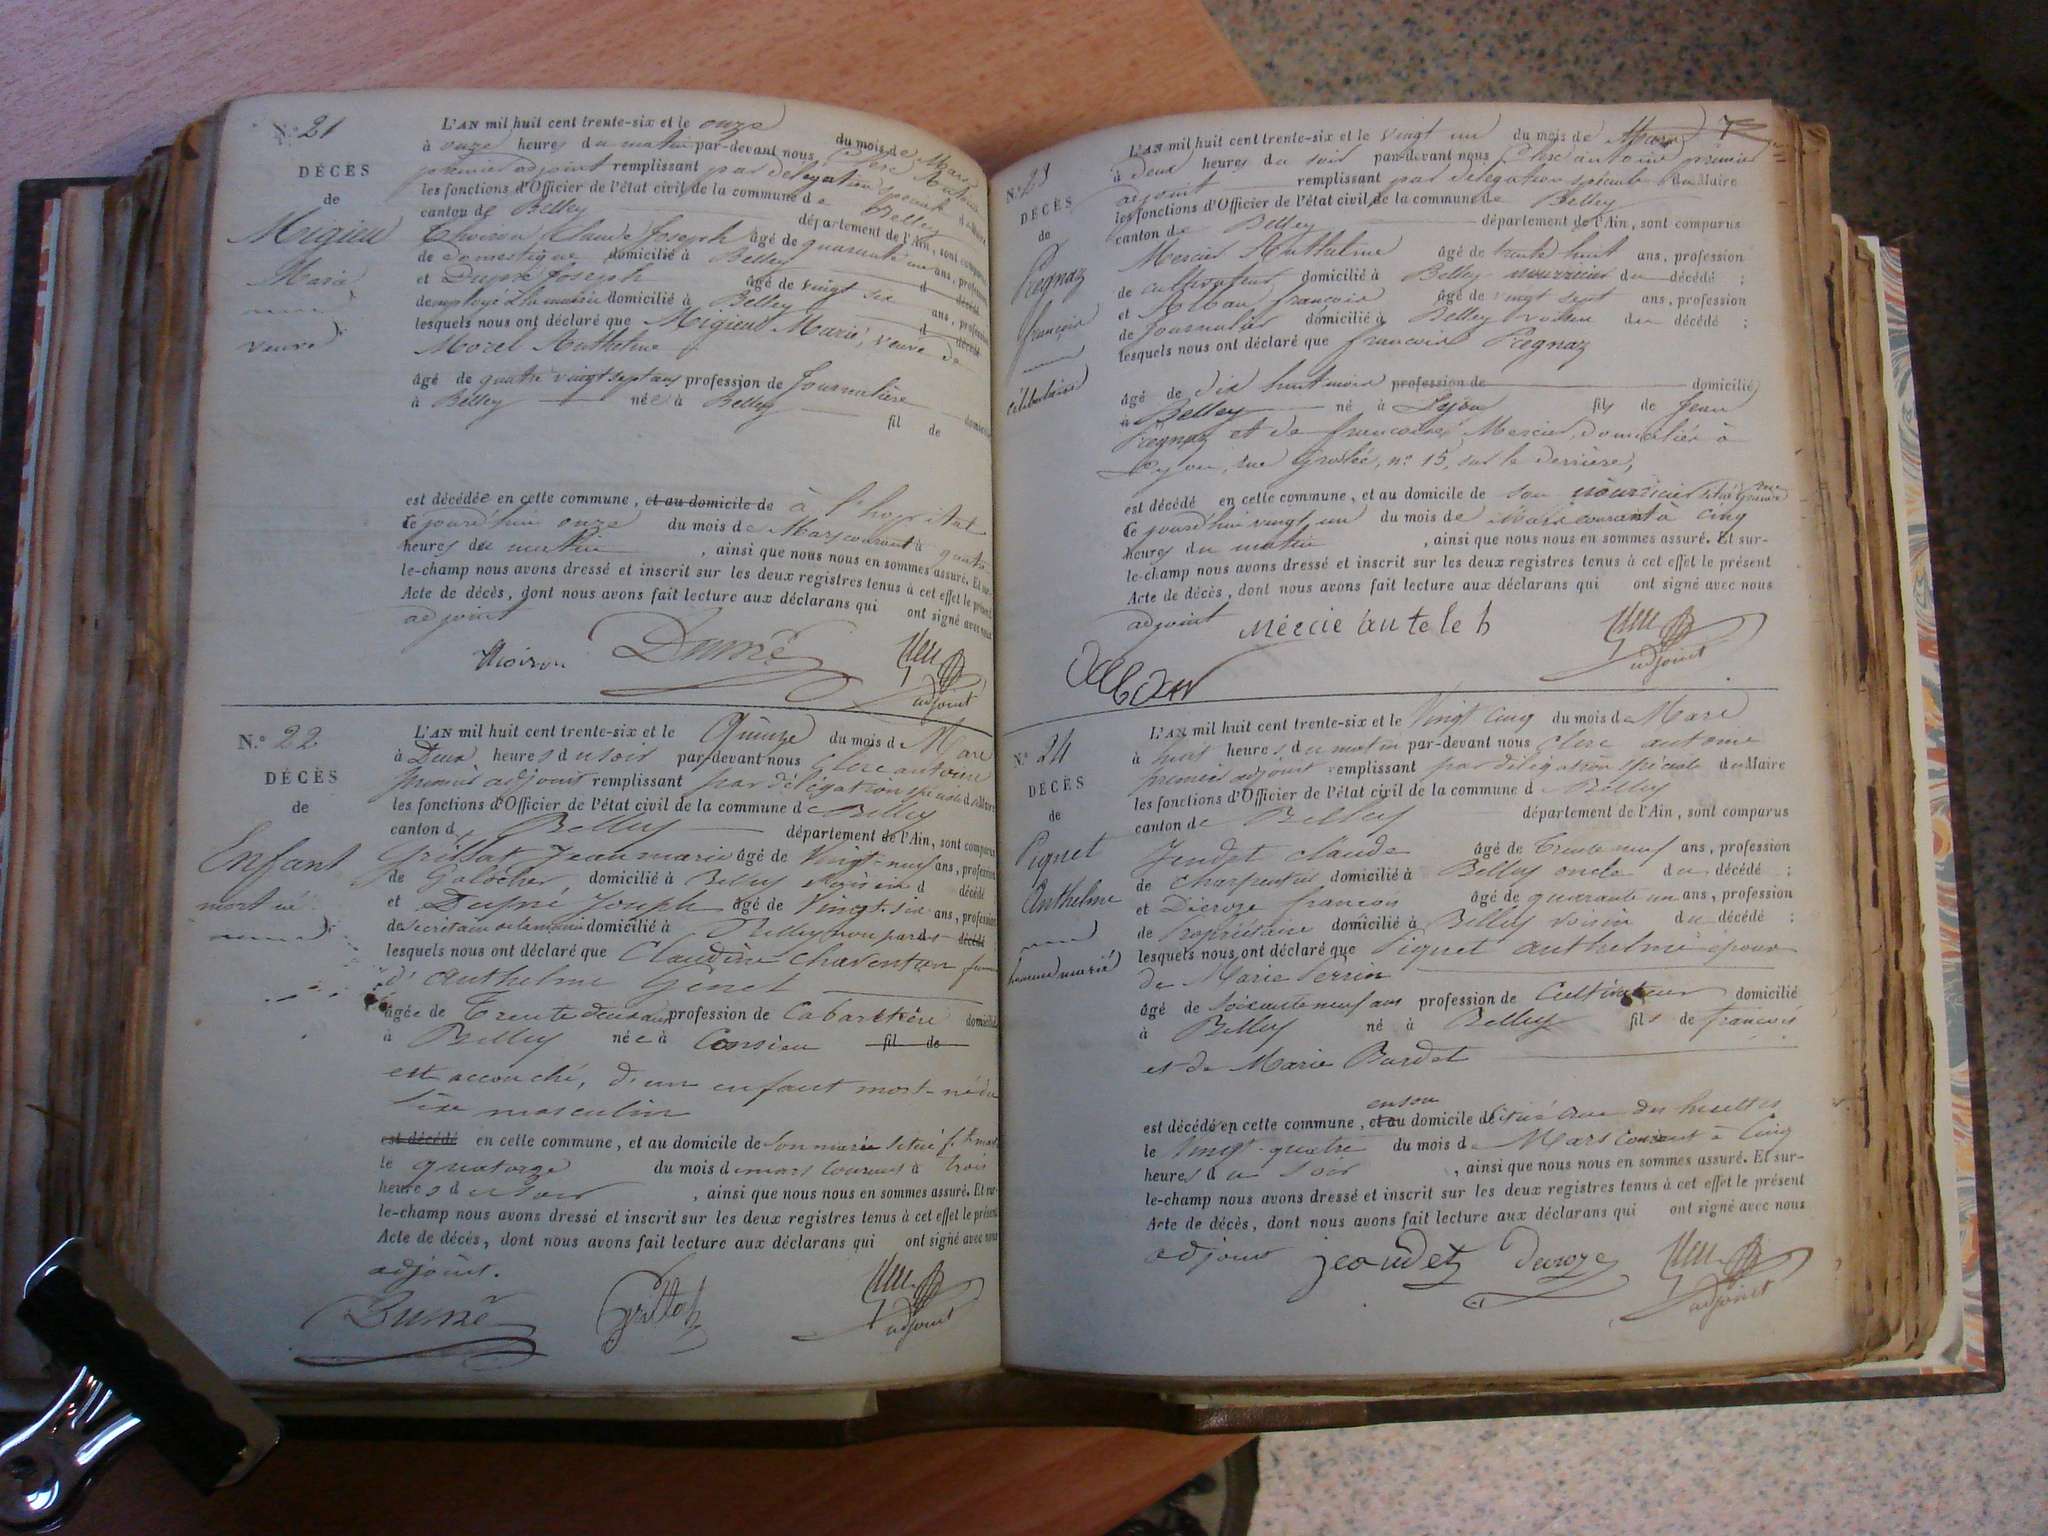 N.º 21
DÉCÈS
de
Migieu
Marie
veuve
L'AN mil huit cent trente-six et le onze du mois de Mars
à onze heures du matin par-devant nous Clerc Antoine
premier adjoint remplissant par délégation spéciale du Maire
les fonctions d'Officier de l'état civil de la commune de Belley
canton de Belley département de l'Ain, sont comparus
Thoiron Claude Joseph âgé de quarante un ans, profession
de domestique domicilié à Belley d décédé
et Dupré Joseph âgé de vingt six ans, profession
d'employé à la mairie domicilié à Belley d décédé
lesquels nous ont déclaré que Migieu Marie, veuve de
Morel Anthelme
âgé de quatre vingt sept ans profession de Journalière domicilié
à Belley née à Belley fil de
est décédée en cette commune, et au domicile de à l'hopital
ce jourd'hui onze du mois de Mars courant à quatre
heures du matin, ainsi que nous nous en sommes assuré. Et sur-
le-champ nous avons dressé et inscrit sur les deux registres tenus à cet effet le présent
Acte de décès, dont nous avons fait lecture aux déclarans qui ont signé avec nous
adjoint
Thoiron Dupré Clerc
adjoint
N.º 22
DÉCÈS
de
Enfant
mort né
L'AN mil huit cent trente-six et le Quinze du mois de Mars
à Deux heures du soir par-devant nous Clerc antoine
premier adjoint remplissant par délégation spéciale du Maire
les fonctions d'Officier de l'état civil de la commune de Belley
canton de Belley département de l'Ain, sont comparus
Grillat Jean marie âgé de Vingt-neuf ans, profession
de Galocher, domicilié à Belley voisin d décédé
et Dupré Joseph âgé de Vingt-six ans, profession
de secrétaire de la mairie domicilié à Belley non parent décédé
lesquels nous ont déclaré que Claudine Charenton femme
d'anthelme Genet
âgée de Trente deux ans profession de Cabaretière domicilié
à Belley née à Conzieu fil de
est accouché, d'un enfant mort-né du
sexe masculin
est décédé en cette commune, et au domicile de son marie situé
le quatorze du mois de mars courant à trois
heures du soir, ainsi que nous nous en sommes assuré. Et sur-
le-champ nous avons dressé et inscrit sur les deux registres tenus à cet effet le présent
Acte de décès, dont nous avons fait lecture aux déclarans qui ont signé avec nous
adjoint.
Dupré Grillat Clerc
adjoint
N.º 23
DÉCÈS
de
Pregnaz
françois
célibataire
L'AN mil huit cent trente-six et le vingt un du mois de Mars
à deux heures du soir par-devant nous Clerc antoine premier
adjoint remplissant par délégation spéciale du Maire
les fonctions d'Officier de l'état civil de la commune de Belley
canton de Belley département de l'Ain, sont comparus
Mercier Anthelme âgé de trente huit ans, profession
de cultivateur domicilié à Belley nourricier du décédé ;
et Alban françois âgé de vingt sept ans, profession
de Journalier domicilié à Belley voisin du décédé ;
lesquels nous ont déclaré que françois Pregnaz
âgé de dix huit mois profession de domicilié
à Belley né à Lyon fils de Jean
Pregnaz et de françoise Mercier, domiciliés à
Lyon, rue Grolée, n.º 15, sur le derrière,
est décédé en cette commune, et au domicile de son nourricier situé
ce jourd'hui vingt un du mois de Mars courant à cinq
heures du matin, ainsi que nous nous en sommes assuré. Et sur-
le-champ nous avons dressé et inscrit sur les deux registres tenus à cet effet le présent
Acte de décès, dont nous avons fait lecture aux déclarans qui ont signé avec nous
adjoint Mércie anteleh Clerc
adjoint
Alban
N.º 24
DÉCÈS
de
Piquet
Anthelme
homme marié
L'AN mil huit cent trente-six et le Vingt cinq du mois de Mars
à huit heures du matin par-devant nous Clerc antoine
premier adjoint remplissant par délégation spéciale du Maire
les fonctions d'Officier de l'état civil de la commune de Belley
canton de Belley département de l'Ain, sont comparus
Jeudet Claude âgé de Trente neuf ans, profession
de Charpentier domicilié à Belley oncle du décédé ;
et Décroze françois âgé de quarante un ans, profession
de Propriétaire domicilié à Belley voisin du décédé ;
lesquels nous ont déclaré que Piquet authelme époux
de Marie Perrin
âgé de soixante neuf ans profession de Cultivateur domicilié
à Belley né à Belley fils de françois
et de Marie Bardet
en son
est décédé en cette commune, et au domicile de situé rue des
le Vingt-quatre du mois de Mars courant à Cinq
heures du soir, ainsi que nous nous en sommes assuré. Et sur-
le-champ nous avons dressé et inscrit sur les deux registres tenus à cet effet le présent
Acte de décès, dont nous avons fait lecture aux déclarans qui ont signé avec nous
adjoint jeaudet Decroze Clerc
adjoint